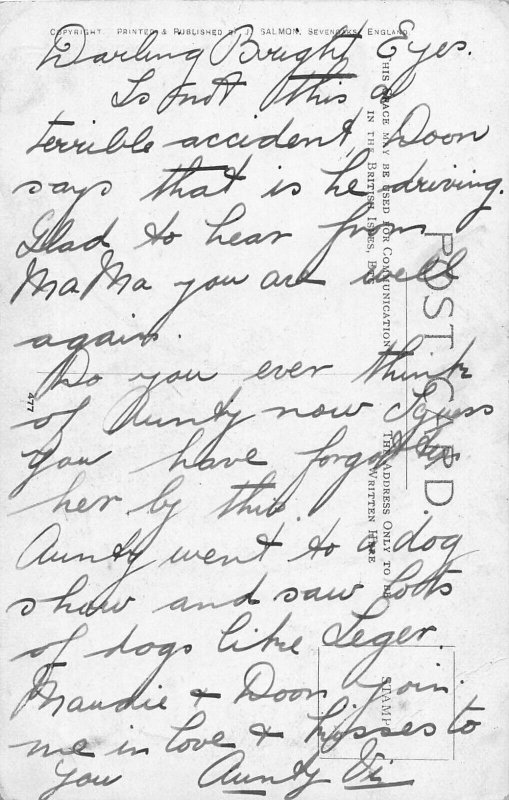 COPYRIGHT. PRINTED & PUBLISHED BY J. SALMON, SEVENOAKS, ENGLAND.
Darling Bright Eyes.
Is not this a
terrible accident, Doon
says that is he driving.
Glad to hear from
MaMa you are well
again.
Do you ever think
of Aunty now I guess
you have forgotten
her by this.
Aunty went to a dog
show and saw lots
of dogs like Leger.
Maudie & Doon join
me in love & kisses to
you Aunty Vi
POST CARD.
THIS SPACE MAY BE USED FOR COMMUNICATION
IN THE BRITISH ISLES, ETC
THE ADDRESS ONLY TO BE
WRITTEN HERE
STAMP
477